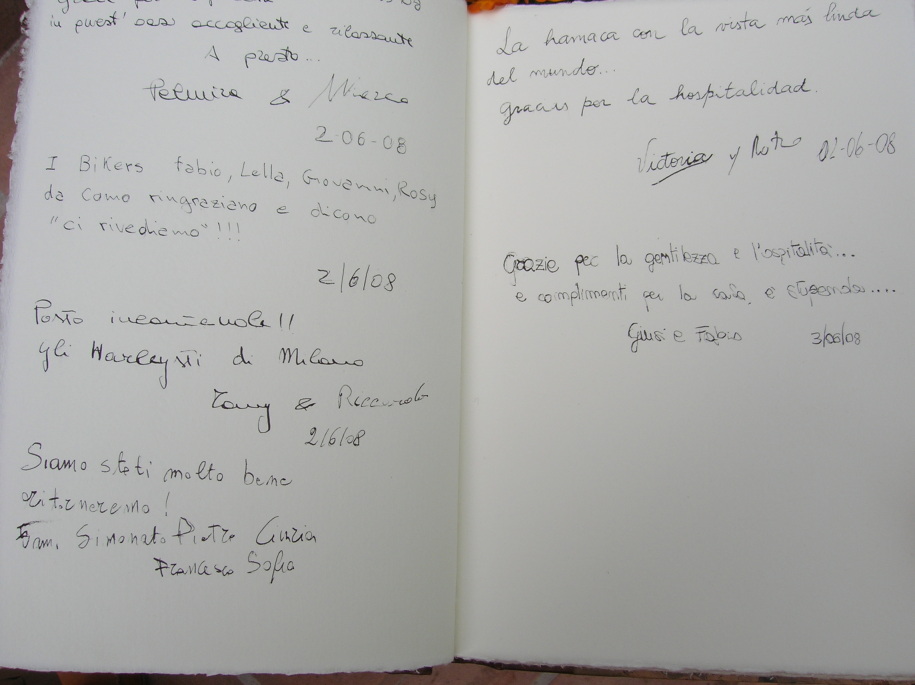 in quest'oasi accogliente e rilassante
A presto...
&
2-06-08
I Bikers fabio, Lella, Giovanni, Rosy
da Como ringraziano e dicono
"ci rivediamo"!!!
2/6/08
Posto incantevole!!
gli Harleysti di Milano
Tony & Riccardo
2/6/08
Siamo stati molto bene
ritorneremo!
Fam. Simonato Pietro Cinzia
Francesco Sofia
La hamaca con la vista más linda
del mundo...
gracias por la hospitalidad.
Victoria y 02-06-08
Grazie per la gentilezza e l'ospitalità...
e complimenti per la casa. è stupenda....
Giusi e Fabio 3/06/08